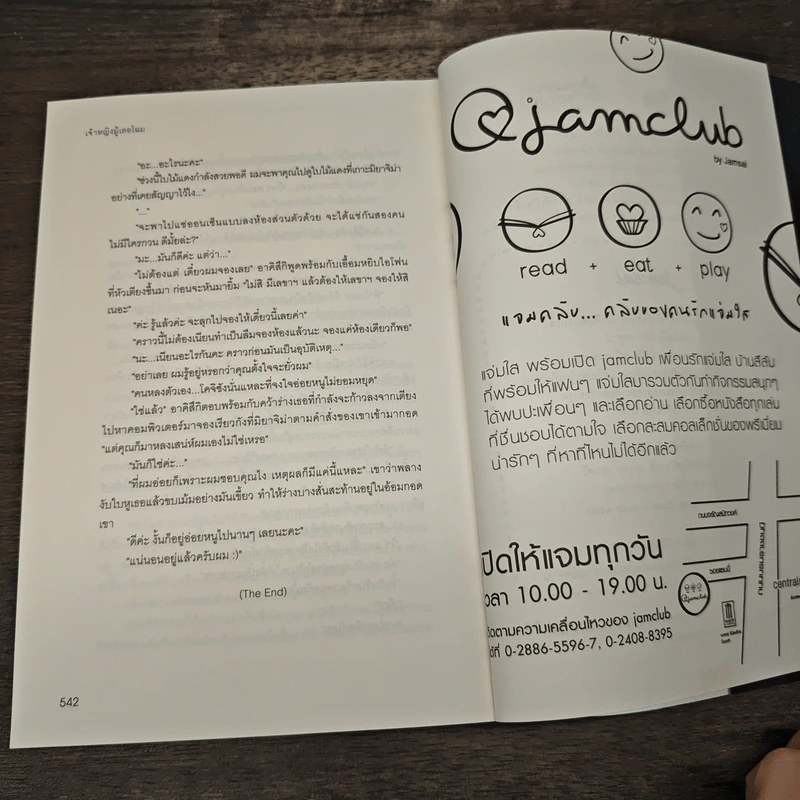 เจ้าหญิงผู้เลอโฉม
"อะ...อะไรนะคะ"
"ช่วงนี้ใบไม้แดงกำลังสวยพอดี ผมจะพาคุณไปดูใบไม้แดงที่เกาะมิยาจิม่า
อย่างที่เคยสัญญาไว้ไง..."
"..."
"จะพาไปแช่ออนเซ็นแบบลงห้องส่วนตัวด้วย จะได้แช่กันสองคน
ไม่มีใครกวน ดีมั้ยล่ะ?"
"มะ...มันก็ดีค่ะ แต่ว่า..."
"ไม่ต้องแต่ เดี๋ยวผมจองเลย" อาคิสึกิพูดพร้อมกับเอื้อมหยิบไอโฟน
ที่หัวเตียงขึ้นมา ก่อนจะหันมายิ้ม "ไม่สิ มีเลขาฯ แล้วต้องให้เลขาฯ จองให้สิ
เนอะ"
"ค่ะ รู้แล้วค่ะ จะลุกไปจองให้เดี๋ยวนี้เลยค่า"
"คราวนี้ไม่ต้องเนียนทำเป็นลืมจองห้องแล้วนะ จองแค่ห้องเดียวก็พอ"
"นะ...เนียนอะไรกันคะ คราวก่อนมันเป็นอุบัติเหตุ..."
"อย่าเลย ผมรู้อยู่หรอกว่าคุณตั้งใจจะยั่วผม"
"คนหลงตัวเอง...โคจิซังนั่นแหละที่จงใจอ่อยหนูไม่ยอมหยุด"
"ใช่แล้ว" อาคิสึกิตอบพร้อมกับคว้าร่างเธอที่กำลังจะก้าวลงจากเตียง
ไปหาคอมพิวเตอร์มาจองเรียวกังที่มิยาจิม่าตามคำสั่งของเขาเข้ามากอด
"แต่คุณก็มาหลงเสน่ห์ผมเองไม่ใช่เหรอ"
"มันก็ใช่ค่ะ..."
"ที่ผมอ่อยก็เพราะผมชอบคุณไง เหตุผลก็มีแค่นี้แหละ" เขาว่าพลาง
งับใบหูเธอแล้วขบเม้มอย่างมันเขี้ยว ทำให้ร่างบางสั่นสะท้านอยู่ในอ้อมกอด
เขา
"ดีค่ะ งั้นก็อยู่อ่อยหนูไปนานๆ เลยนะคะ"
"แน่นอนอยู่แล้วครับผม :)"
(The End)
542
jamclub
by Jamsai
read + eat + play
แจมคลับ... คลับของคนรักแจ่มใส
แจ่มใส พร้อมเปิด jamclub เพื่อนรักแจ่มใส บ้านสีส้ม
ที่พร้อมให้แฟนๆ แจ่มใสมารวมตัวกันทำกิจกรรมสนุกๆ
ได้พบปะเพื่อนๆ และเลือกอ่าน เลือกซื้อหนังสือทุกเล่ม
ที่ชื่นชอบได้ตามใจ เลือกสะสมคอลเล็กชั่นของพรีเมี่ยม
น่ารักๆ ที่หาที่ไหนไม่ได้อีกแล้ว
เปิดให้แจมทุกวัน
เวลา 10.00 - 19.00 น.
ติดตามความเคลื่อนไหวของ jamclub
ได้ที่ 0-2886-5596-7, 0-2408-8395
ถนนจรัญสนิทวงศ์
jamclub
central